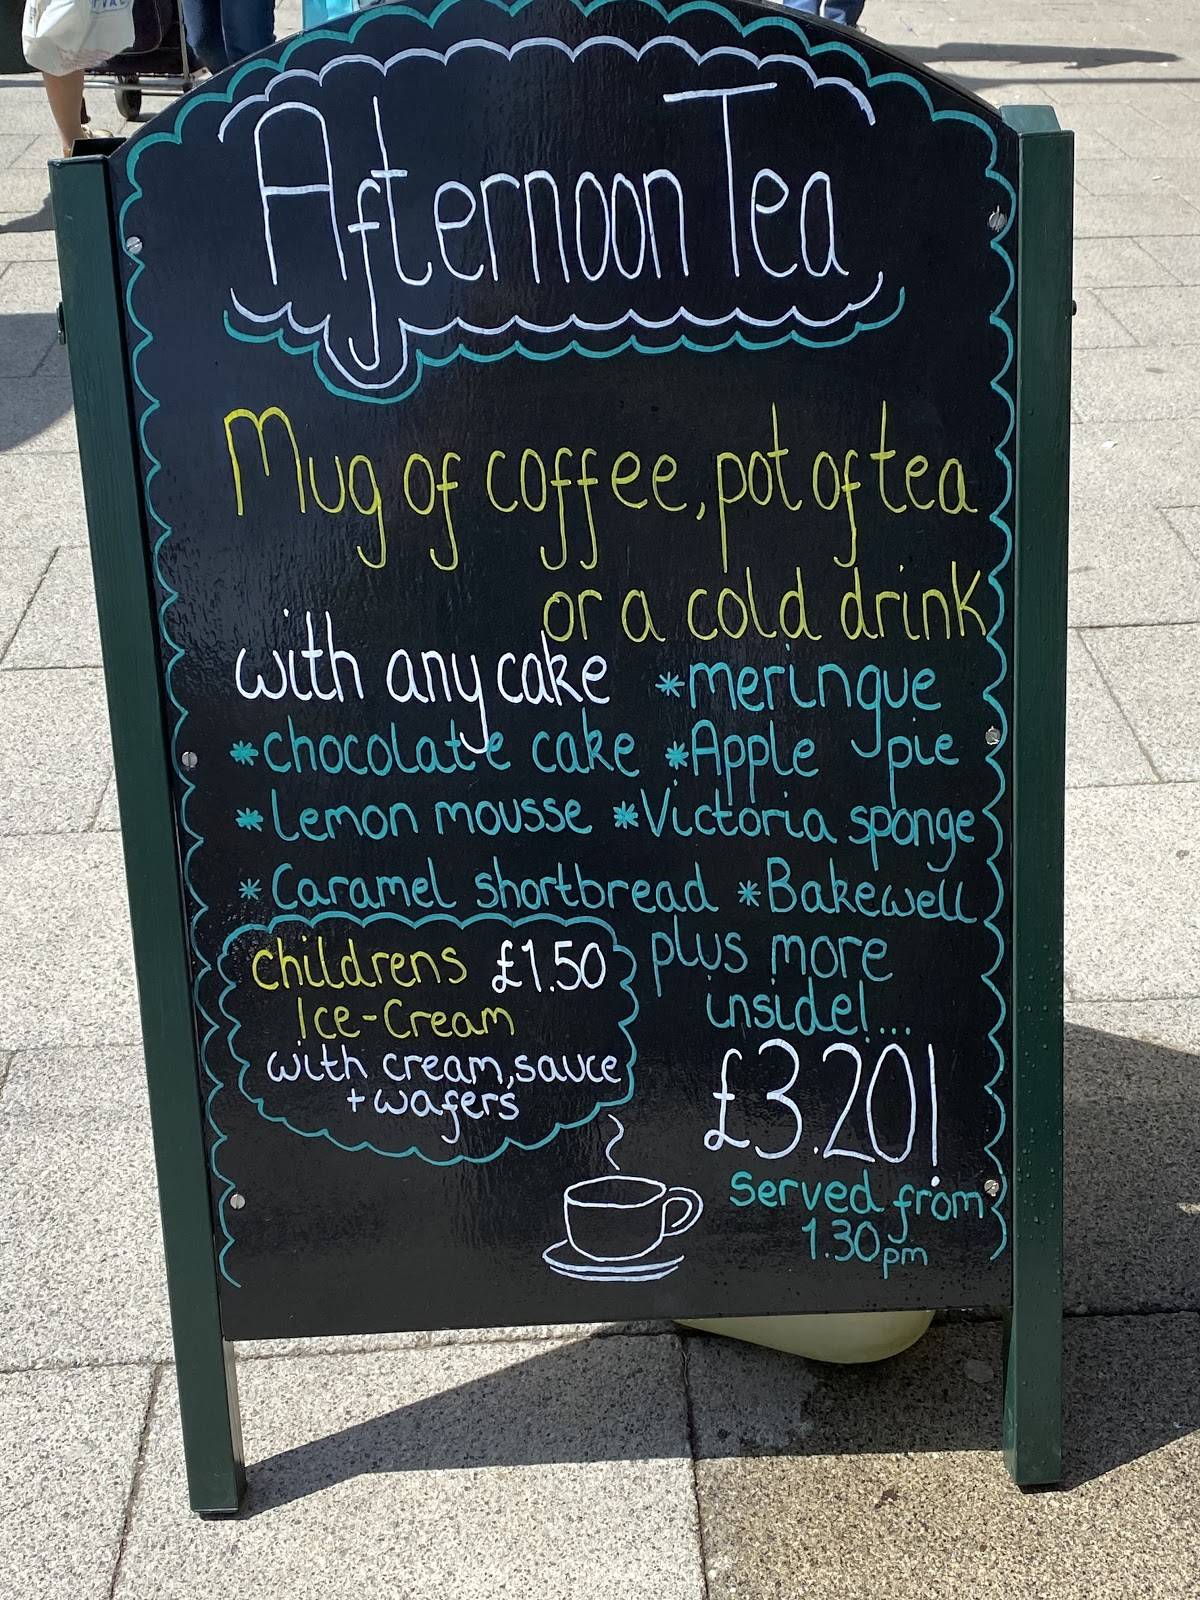 Afternoon Tea
Mug of coffee, pot of tea
or a cold drink
with any cake *meringue
*chocolate cake *Apple pie
*Lemon mousse *Victoria sponge
*Caramel shortbread *Bakewell
plus more
inside!...
£3.20!
served from
1.30pm
childrens £1.50
Ice-Cream
with cream, sauce
+ wafers